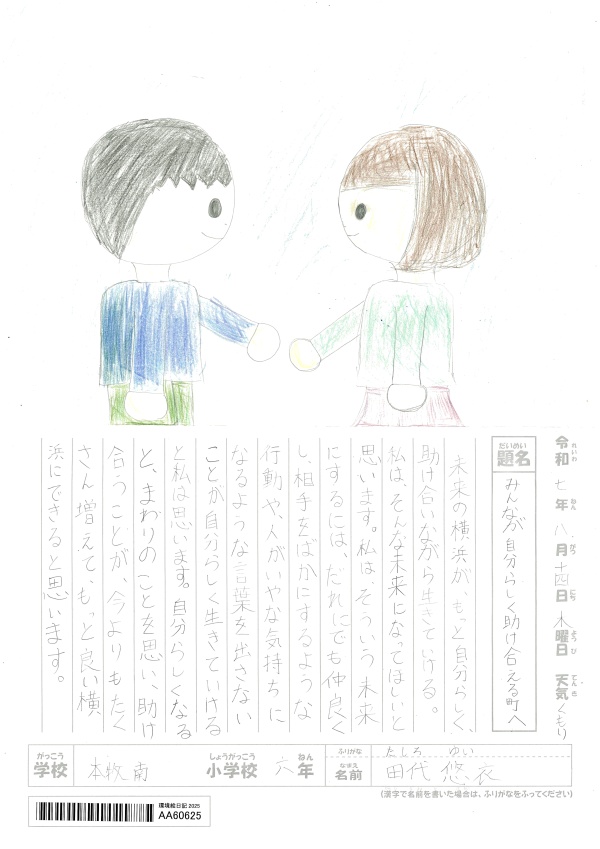 令和 七年 八月 十四日 木曜日 天気 くもり
れいわ ねん がつ にち ようび てんき
だいめい
題名 みんなが自分らしく助け合える町へ
未来の横浜が、もっと自分らしく、
助け合いながら生きていける。
私は、そんな未来になってほしいと
思います。私は、そういう未来
にするには、だれにでも仲良く
し、相手をばかにするような
行動や、人がいやな気持ちに
なるような言葉を出さない
ことが自分らしく生きていける
と私は思います。自分らしくなる
と、まわりのことを思い、助け
合うことが、今よりもたく
さん増えて、もっと良い横
浜にできると思います。
がっこう しょうがっこう ねん
学校 本牧南 小学校 六年
ふりがな たしろ ゆい
なまえ
名前 田代 悠衣
(漢字で名前を書いた場合は、ふりがなをふってください)
環境絵日記 2025
AA60625